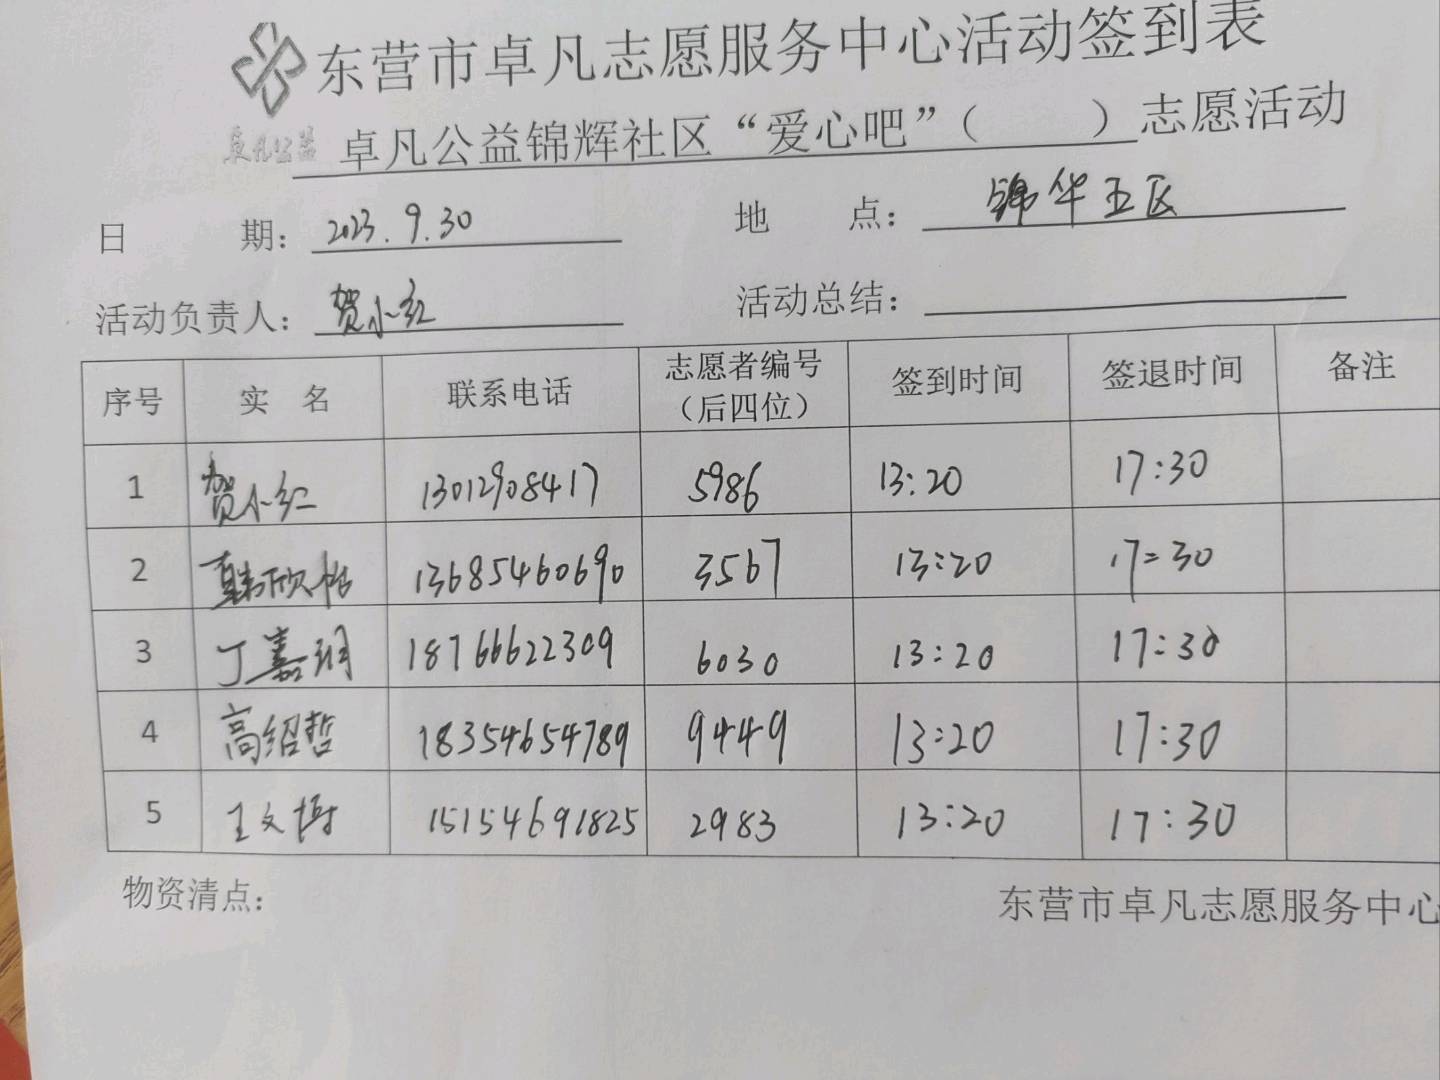 东营市卓凡志愿服务中心活动签到表
卓凡公益
卓凡公益锦辉社区“爱心吧”（ ）志愿活动
日 期： 2023.9.30 地 点： 锦华五区
活动负责人： 贺小红 活动总结：
序号 实 名 联系电话 志愿者编号（后四位） 签到时间 签退时间 备注
1 贺小红 13012908417 5986 13:20 17:30
2 韩欣 13685460690 3567 13:20 17:30
3 丁嘉润 18766622309 6030 13:20 17:30
4 高绍哲 18354654789 9449 13:20 17:30
5 王文博 15154691825 2983 13:20 17:30
物资清点： 东营市卓凡志愿服务中心